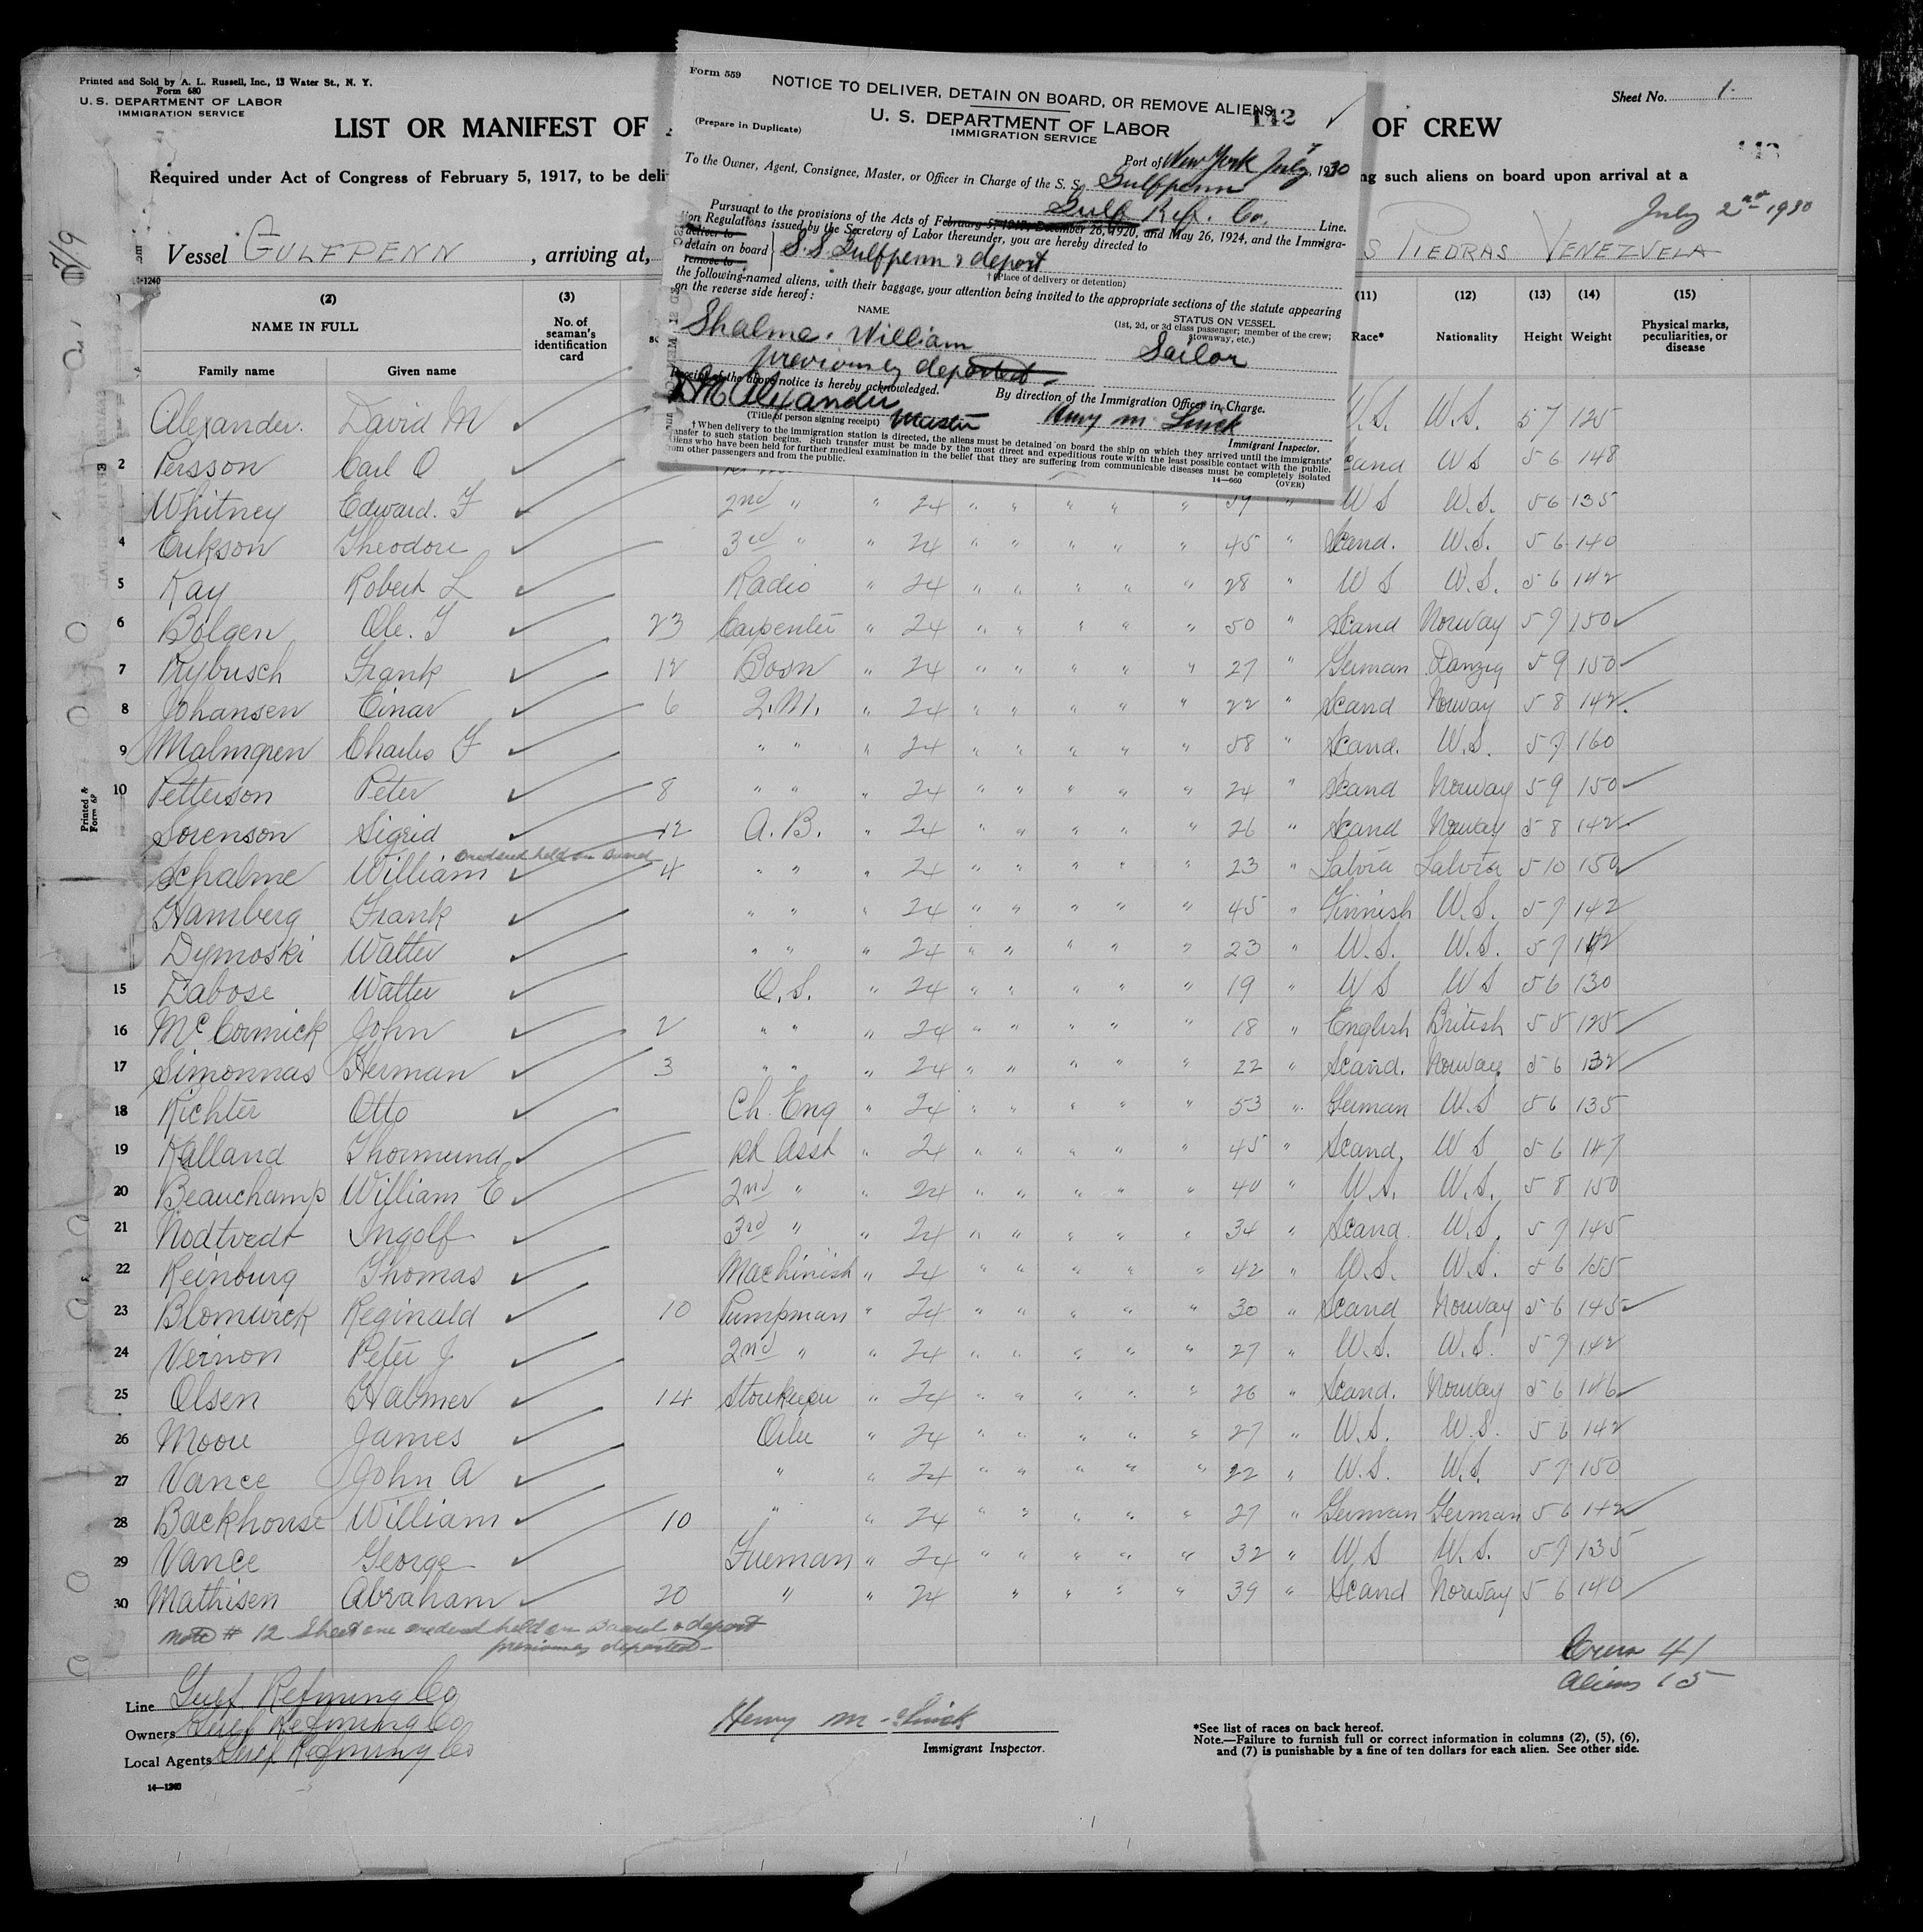 Printed and Sold by A. L. Russell, Inc., 13 Water St., N. Y.
Form 680
U. S. DEPARTMENT OF LABOR
IMMIGRATION SERVICE
Sheet No. 1.
LIST OR MANIFEST OF
OF CREW
Required under Act of Congress of February 5, 1917, to be deli
ng such aliens on board upon arrival at a
July 2nd 1930
Vessel GULFPENN , arriving at,
S PIEDRAS VENEZUELA
Form 559
NOTICE TO DELIVER, DETAIN ON BOARD, OR REMOVE ALIENS
142
(Prepare in Duplicate)
U. S. DEPARTMENT OF LABOR
IMMIGRATION SERVICE
Port of New York July, 1930
To the Owner, Agent, Consignee, Master, or Officer in Charge of the S. S. Gulfpenn
Gulf Ref. Co, Line.
Pursuant to the provisions of the Acts of February 5, 1917, December 26, 1920, and May 26, 1924, and the Immigra-
tion Regulations issued by the Secretary of Labor thereunder, you are hereby directed to
deliver to
detain on board S.S. Gulfpenn & deport
remove to
†(Place of delivery or detention)
the following-named aliens, with their baggage, your attention being invited to the appropriate sections of the statute appearing
on the reverse side hereof:
NAME
STATUS ON VESSEL
(1st, 2d, or 3d class passenger; member of the crew;
stowaway, etc.)
Shalme, William Sailor
previously deported
Receipt of the above notice is hereby acknowledged.
By direction of the Immigration Officer in Charge.
D M Alexander
(Title of person signing receipt) Master
Immigrant Inspector.
†When delivery to the immigration station is directed, the aliens must be detained on board the ship on which they arrived until the immigrants'
transfer to such station begins. Such transfer must be made by the most direct and expeditious route with the least possible contact with the public.
Aliens who have been held for further medical examination in the belief that they are suffering from communicable diseases must be completely isolated
from other passengers and from the public.
14—660 (OVER)
(2) (3) (11) (12) (13) (14) (15)
NAME IN FULL No. of seaman's identification card Race* Nationality Height Weight Physical marks, peculiarities, or disease
Family name Given name
Alexander. David M U.S. U.S. 5 7 125
2 Persson Carl O Scand U S 5 6 148
Whitney Edward. F 2nd " " 24 " " " " " " U S U.S. 5 6 135
4 Erikson Theodore 3rd " " 24 " " " " " 45 " Scand. U.S. 5 6 140
5 Kay Robert L Radio " 24 " " " " " 28 " U S U.S. 5 6 142
6 Bolgen Ole. T 23 Carpenter " 24 " " " " " 50 " Scand Norway 5 7 150
7 Rybusch Frank 12 Bosn " 24 " " " " " 27 " German Danzig 5 9 150
8 Johansen Einar 6 Q.M. " 24 " " " " " 22 " Scand Norway 5 8 142
9 Malmgren Charles F " " " 24 " " " " " 58 " Scand. U.S. 5 7 160
10 Petterson Peter 8 " " " 24 " " " " " 24 " Scand Norway 5 9 150
Sorenson Sigrid 12 A.B. " 24 " " " " " 26 " Scand Norway 5 8 142
Ordered held on board
Schalme William 4 " " " 24 " " " " " 23 " Latvia Latvia 5 10 150
Hamberg Frank " " " 24 " " " " " 45 " Finnish U.S. 5 7 142
Dymoski Walter " " " 24 " " " " " 23 " U.S. U.S. 5 7 142
15 Dabose Walter O.S. " 24 " " " " " 19 " U S U S 5 6 130
16 McCormick John 2 " " " 24 " " " " " 18 " English British 5 5 125
17 Simonnas Herman 3 " " " 24 " " " " " 22 " Scand. Norway 5 6 132
18 Richter Otto Ch. Eng " 24 " " " " " 53 " German U.S 5 6 135
19 Kalland Thormund 1st Asst " 24 " " " " " 45 " Scand. U S 5 6 147
20 Beauchamp William E 2nd " " 24 " " " " " 40 " U.S. U.S. 5 8 150
21 Nodtvedt Ingolf 3rd " " 24 " " " " " 34 " Scand U.S. 5 7 145
22 Reinburg Thomas Machinist " 24 " " " " " 42 " U.S. U.S. 5 6 155
23 Blomvick Reginald 10 Pumpman " 24 " " " " " 30 " Scand Norway 5 6 145
24 Vernon Peter J 2nd " " 24 " " " " " 27 " U.S. U.S. 5 7 142
25 Olsen Halmer 14 Storekeeper " 24 " " " " " 26 " Scand. Norway 5 6 146
26 Moore James Oiler " 24 " " " " " 27 " U.S. U.S. 5 6 142
27 Vance John A " " 24 " " " " " 22 " U.S. U.S. 5 7 150
28 Backhouse William 10 " " 24 " " " " " 27 " German German 5 6 142
29 Vance George Fireman " 24 " " " " " 32 " U S U.S. 5 7 135
30 Mathisen Abraham 20 " " 24 " " " " 39 " Scand Norway 5 6 140
Note # 12 Sheet one ordered held on Board & deport
previously deported
Crew 41
Aliens 15
Line Gulf Refining Co
Owners Gulf Refining Co
Local Agents Gulf Refining Co
Henry M.
Immigrant Inspector.
*See list of races on back hereof.
Note.—Failure to furnish full or correct information in columns (2), (5), (6),
and (7) is punishable by a fine of ten dollars for each alien. See other side.
14—1240